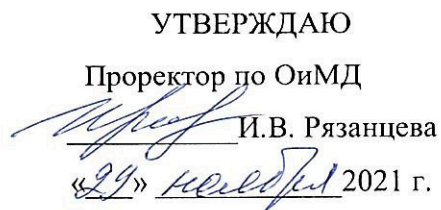 УТВЕРЖДАЮ
Проректор по ОиМД
И.В. Рязанцева
«29» ноября 2021 г.